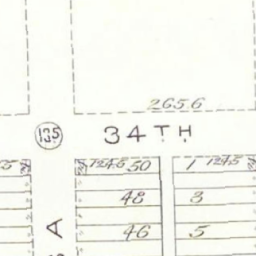 265.6
135 34TH
124.5 50 1 124.5
48 3
46 5
A